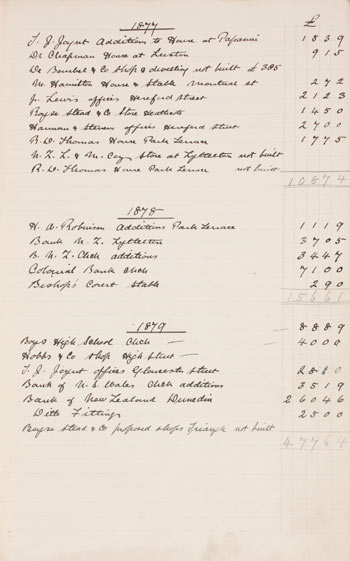 1877 £
T. J. Joynt Additions to House at Papanui 1839
Dr Chapman House at Leeston 915
De Bourbel & Co Shop & dwelling not built £385
M. Hamilton House & Stable Montreal st 272
J. Lewis offices Hereford street 2123
Royse Stead & Co Store Heathcote 1450
Harman & Stevens offices Hereford street 2700
B. W. Thomas House Park Terrace 1775
N. Z. L. & M. Coy Store at Lyttelton not built
R. W. Thomas House Park Terrace not built
10874
1878
H. W. Robinson Additions Park Terrace 1119
Bank N. Z. Lyttelton 3705
B. N. Z. Chch additions 3447
Colonial Bank Chch 7100
Bishop's Court Stable 290
15661
1879 — 8889
Boys High School Chch — 4000
Hobbs & Co Shop High Street —
T. J. Joynt offices Gloucester street 2810
Bank of N. S. Wales Chch additions 3519
Bank of New Zealand Dunedin 26046
Ditto Fittings 2500
Royse Stead & Co proposed shops Triangle not built
47764